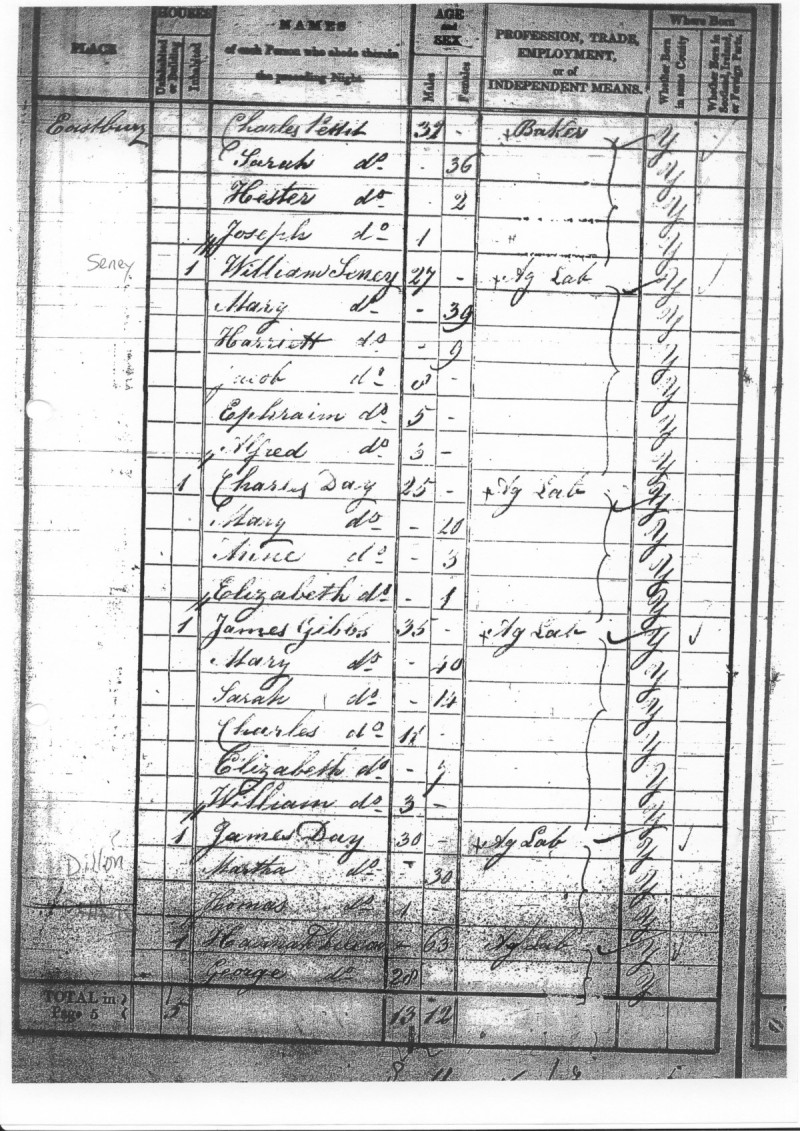 PLACE
HOUSES
Uninhabited or Building
Inhabited
NAMES
of each Person who abode therein
the preceding Night.
AGE and SEX
Males
Females
PROFESSION, TRADE,
EMPLOYMENT,
or of
INDEPENDENT MEANS.
Where Born
Whether Born in same County
Whether Born in Scotland, Ireland, or Foreign Parts.
Eastbury Charles Pettit 32 - Baker Y
Sarah do - 36 Y
Hester do 2 Y
Joseph do 1 Y
Seney
1 William Seney 27 - Ag Lab Y
Mary do - 39 Y
Harriett do - 9 Y
Jacob do 8 - Y
Ephraim do 5 - Y
Alfred do 3 - Y
1 Charles Day 25 - Ag Lab Y
Mary do - 20 Y
Anne do - 3 Y
Elizabeth do - 1 Y
1 James Gibbs 35 - Ag Lab Y
Mary do - 40 Y
Sarah do - 14 Y
Charles do 12 Y
Elizabeth do - 7 Y
William do 3 - Y
1 James Day 30 - Ag Lab Y
Dillon ?
Martha do - 30 Y
Thomas do 1 Y
1 Hannah - 63 Ag Lab Y
George do 28 Y
TOTAL in Page 5 5 13 12